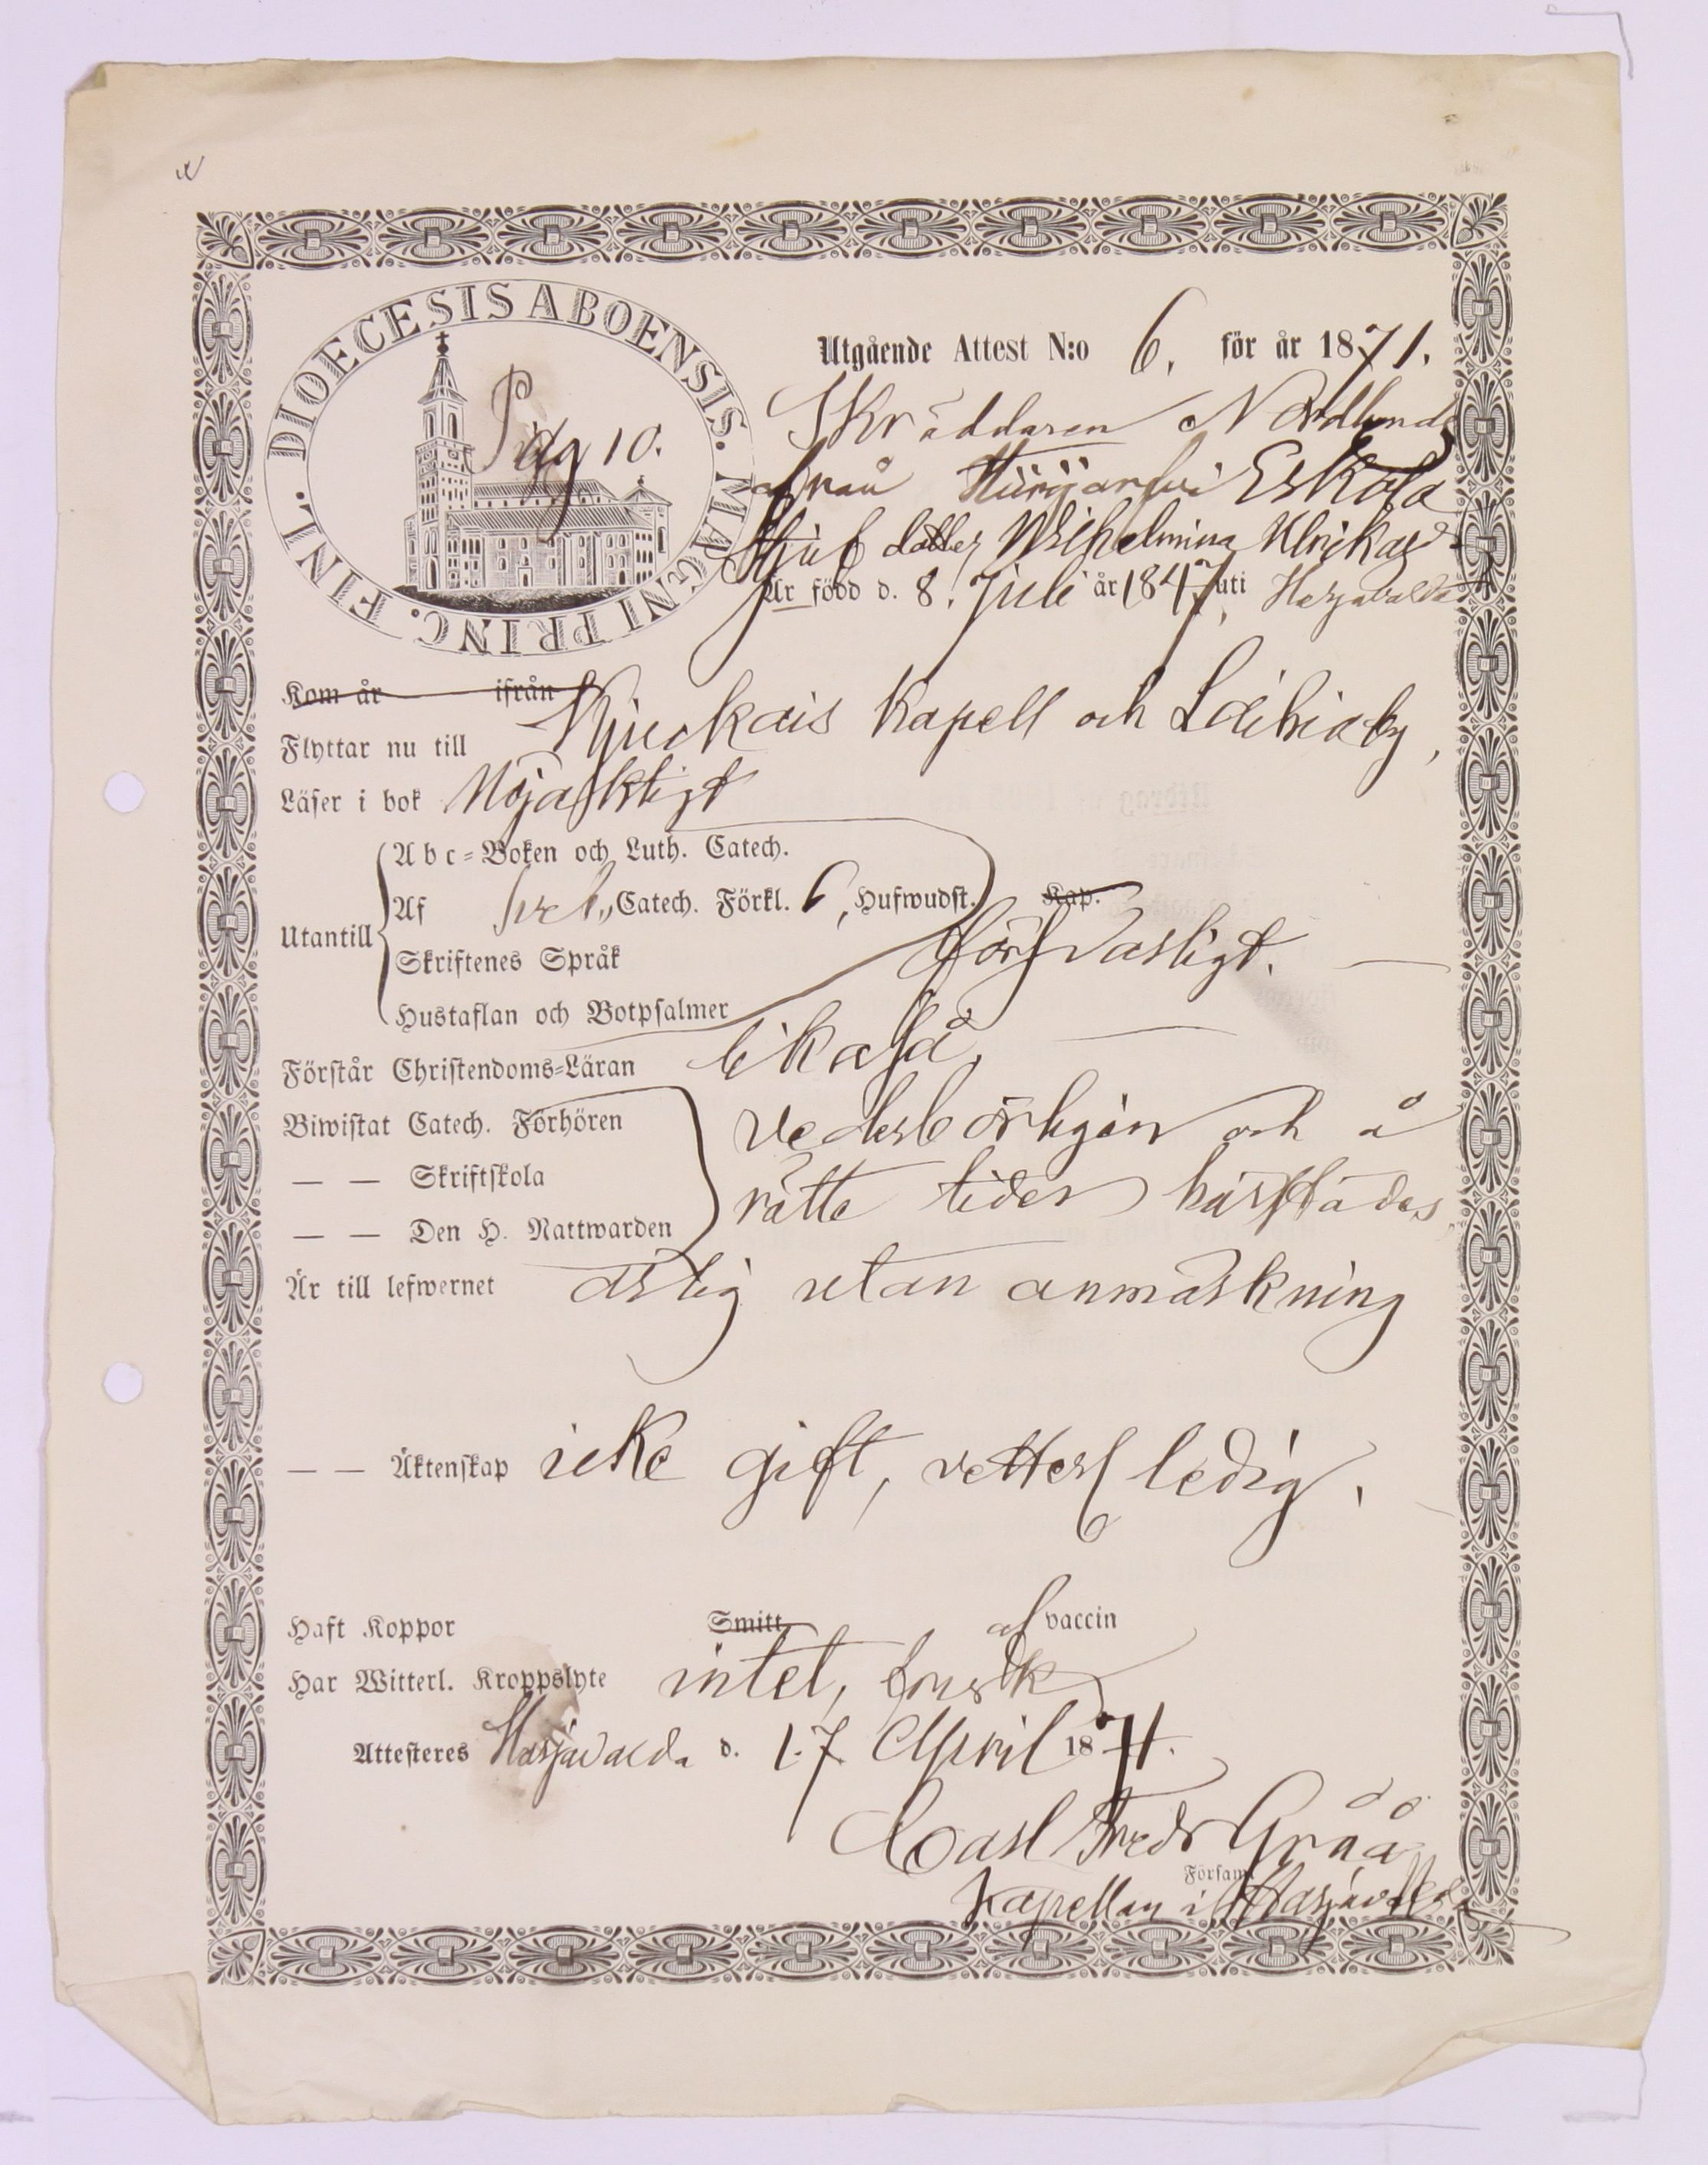 DIOECESIS ABOENSIS. MAGNI PRINC. FINL.
Pag 10.
Utgående Attest N:o 6. för år 1871.
Skräddaren Nordlunds
ifrån Hiirijärvi Eskola
Stjufdotter Wilhelmina Ulrika
Är född d. 8. Juli år 1847, uti Harjavalda
Kom år ifrån
Flyttar nu till Kjuckais Kapell och
Läser i bok Nöjaktigt
Abc-Boken och Luth. Catech.
Utantill
Af Sveb., Catech. Förkl. 6, Hufwudst. Kap.
försvarligt.
Skriftenes Språk
Hustaflan och Botpsalmer
Förstår Christendoms-Läran likaså,
Biwistat Catech. Förhören vederbörligen och å
— — Skriftskola rätte tider härstädes,
— — Den H. Nattwarden
Är till lefwernet ärlig utan anmärkning
— — Äktenskap icke gift, ledig.
Haft Koppor Smitt af vaccin
Har Witterl. Kroppslyte intet, frisk
Attesteres Harjavalda d. 17 April 1871.
Carl Fredr Gråå
Försam
Kapellan i Harjavalda